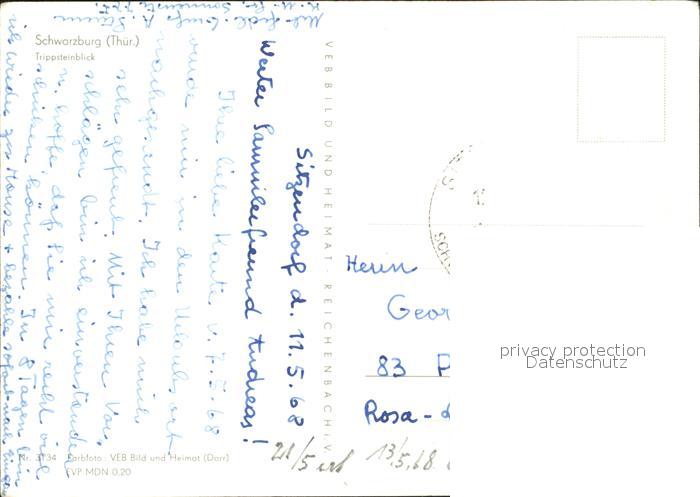 Schwarzburg (Thür.)
Trippsteinblick
VEB BILD UND HEIMAT · REICHENBACH i. V.
Sitzendorf d. 11.5.68
Werter Sammlerfreund Andreas!
Ihre liebe Karte v. 7.5.68
wurde mir in den Urlaubsort
nachgesandt. Ich habe mich
sehr gefreut. Mit Ihren Vor-
schlägen bin ich einverstanden
u. hoffe, daß Sie mir recht viel
schicken können. In 8 Tagen bin
ich wieder zu Hause + bezahle sofort nach
Herrn
Geor
83 P
Rosa-
21/5 13/5.68
Nr. 3134 Farbfoto: VEB Bild und Heimat (Darr)
EVP MDN 0,20
privacy protection
Datenschutz